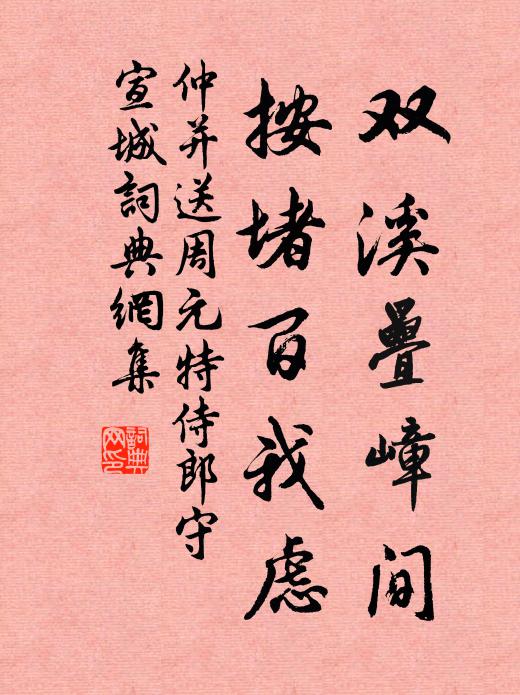 双溪疊嶂间
按堵百我虑
仲并送周元特侍郎守
宣城詞典網集
詞典网印